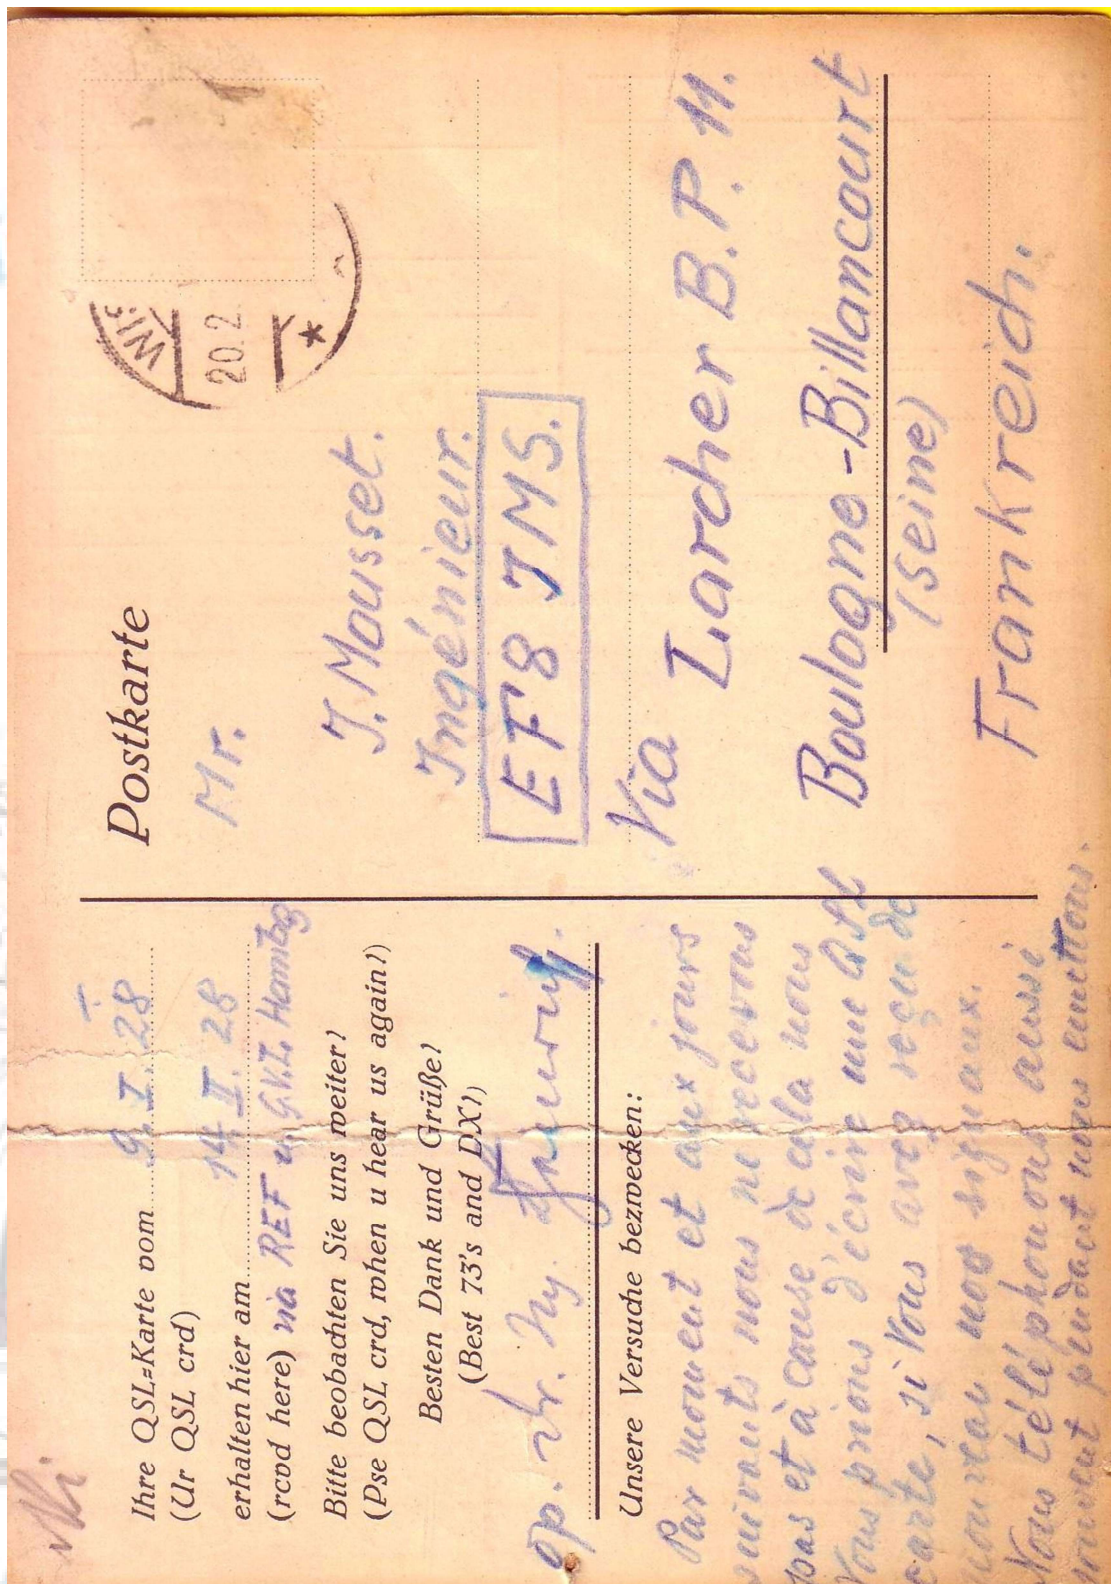 Ihre QSL=Karte vom 9. I. 28
(Ur QSL crd)
erhalten hier am 14. II. 28
(rcvd here) via REF
Bitte beobachten Sie uns weiter!
(Pse QSL crd, when u hear us again!)
Besten Dank und Grüße!
(Best 73's and DX!)
op. Dr. Ing.
Unsere Versuche bezwecken:
Par moment et aux jours
suivants nous ne recevons
pas et à cause de cela nous
Vous prions d'écrire une QSL
carte, si Vous avez reçu de
nouveau nos signaux.
Nous téléphonons aussi
moment pendant nous emettons.
Postkarte
20.2
Mr.
J. Mousset.
Ingénieur.
EF8 JMS.
Via
Larcher B.P. 11.
Boulogne-Billancourt
(Seine)
Frankreich.